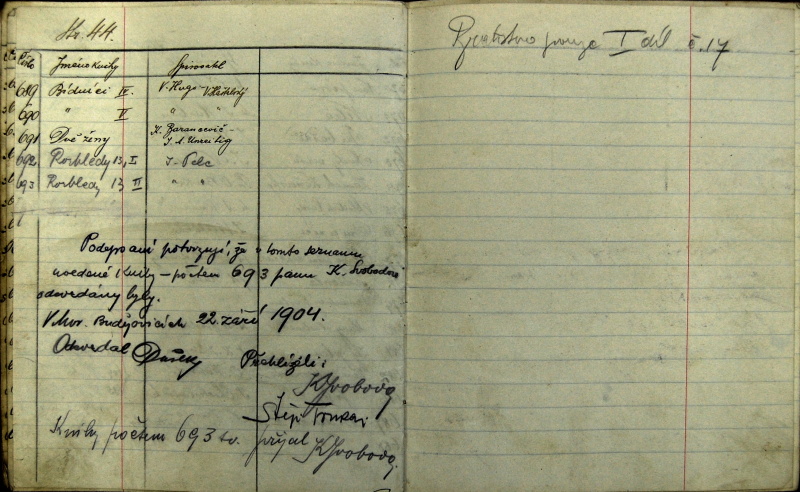 Str. 44.
Číslo Jméno knihy Spisovatel
689 Bídníci IV. V. Hugo - V. Hálek
690 " V " "
691 Dvě ženy K. Barancevič - J. A. Unzeitig
692 Rozhledy 13, I J. Pelc
693 Rozhledy 13 II " "
Podepsaní potvrzují, že v tomto seznamu
uvedené knihy - počtem 693 panu K. Svobodovi
odevzdány byly.
V Mor. Budějovicích 22. září 1904.
Odevzdal Přehlíželi:
KSvoboda
Štěp.
Knihy počtem 693 sv. přijal KSvoboda
pouze I díl č. 17